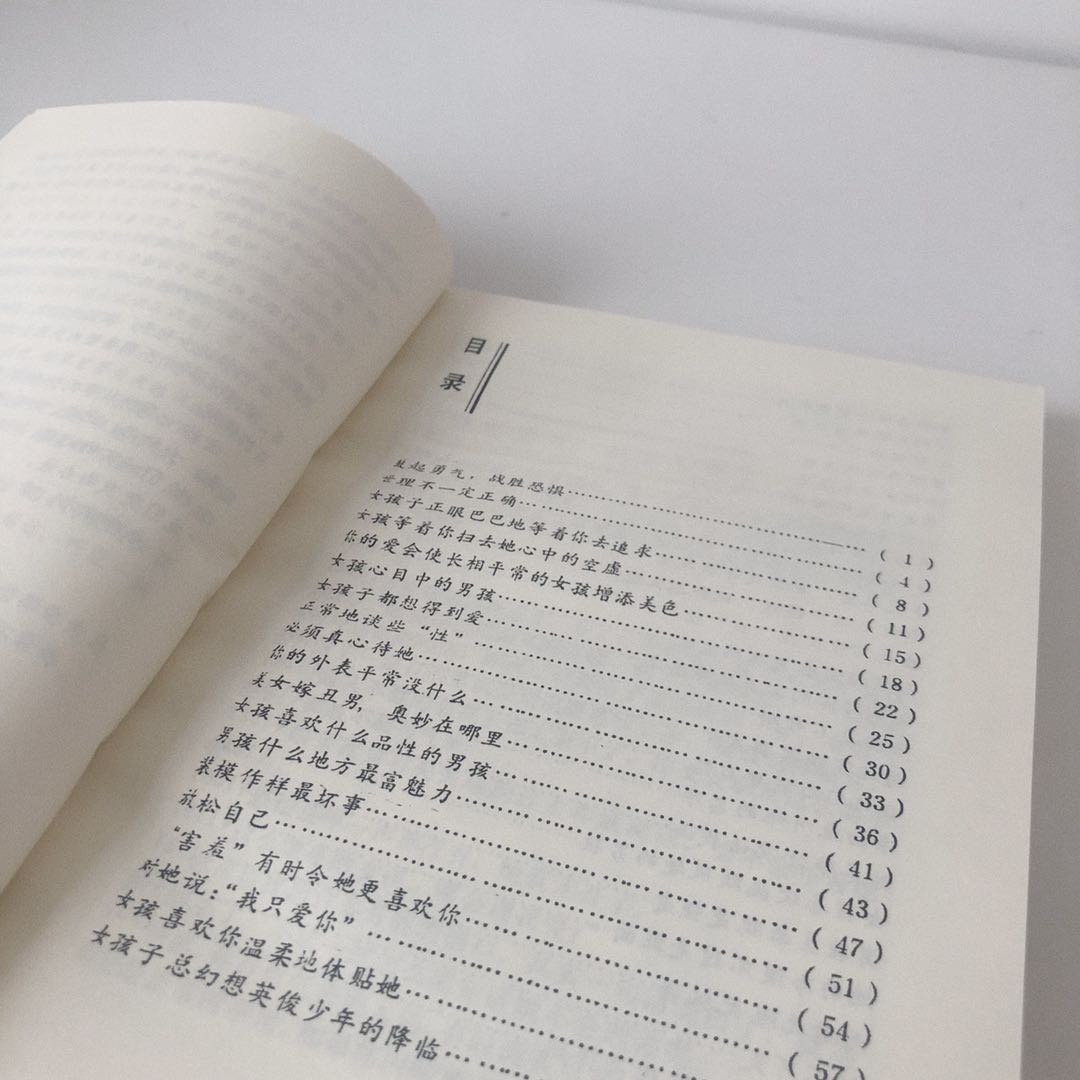 目录
鼓起勇气，战胜恐惧……………………（1）
理不一定正确……………………（4）
女孩子正眼巴巴地等着你去追求……………………（8）
女孩等着你扫去她心中的空虚……………………（11）
你的爱会使长相平常的女孩增添美色……………………（15）
女孩心目中的男孩……………………（18）
女孩子都想得到爱……………………（22）
正常地谈些“性”……………………（25）
必须真心待她……………………（30）
你的外表平常没什么……………………（33）
美女嫁丑男，奥妙在哪里……………………（36）
女孩喜欢什么品性的男孩……………………（41）
男孩什么地方最富魅力……………………（43）
装模作样最坏事……………………（47）
放松自己……………………（51）
“害羞”有时令她更喜欢你……………………（54）
对她说：“我只爱你”……………………（57）
女孩喜欢你温柔地体贴她……………………
女孩子总幻想英俊少年的降临……………………